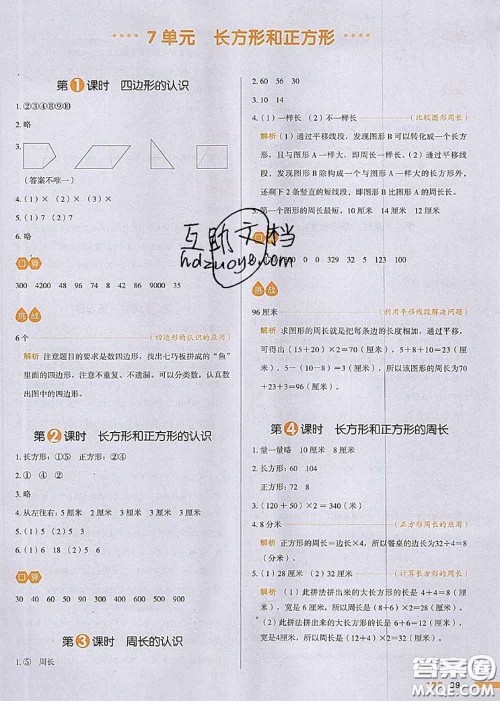 7 单元 长方形和正方形
第1课时 四边形的认识
1. ②③④⑧⑨⑩
2. 略
3.
(答案不唯一)
4. (1)× (2)× (3)×
5. (1)7 (2)7
6. 略
口算
300 4200 48 96 8 7114 42 90 735
挑战
6个 (四边形的认识的应用)
解析 注意题目的要求是数四边形，找出七巧板拼成的“鱼”
里面的四边形，注意不重复、不遗漏。可以分类数，认真数
出图中的四边形。
第2课时 长方形和正方形的认识
1. 长方形：①⑤ 正方形：②④
2. ① ④ ②
3. 略
4. 从左往右：5 4 5 4
5. (1)5 (2)6
6. (1)2 (2)18 18
口算
30 40 60 900 90 15 0 400 690
第3课时 周长的认识
1. ⑤ 周长
2. 60 56 30
3. 10 14
4. (1)一样长 (2)不一样长 (比较图形周长)
解析 (1)通过平移线段，发现图形B可以转化成一个长方
形，且与图形A一样大，即周长一样长。(2)通过平移线段，
发现图形B除了构成一个与图形A一样大的长方形外，
还剩下2条竖直的短线段，即图形B比图形A的周长长。
第一个图形的周长最短，10厘米 14厘米 12厘米
口算
100 0 0 329 132 100 5
挑战
96厘米 (利用平移线段解决问题)
解析 求图形的周长就是把每条边的长度相加，通过平移，
得出(15+20)×2=70(厘米)，所以这个图形的周长为70
+23+3=96(厘米)。
第4课时 长方形和正方形的周长
1. 量一量略 10厘米 8厘米
2. 长方形：60 104
正方形：72 8
3. (120+50)×2=340(厘米)
4. 8分米 (正方形周长的应用)
解析 正方形的周长=边长×4，所以餐桌的边长为32÷4=8
(分米)。
5. (1)28厘米 (2)32厘米 (计算长方形的周长)
解析 (1)此拼法拼出来的大长方形的长是4+4=8(厘
米)，宽是6厘米，所以周长是(8+6)×2=28(厘米)。
(2)此拼法拼出来的大长方形的长是6+6=12(厘米)，
宽是4厘米，所以周长是(12+4)×2=32(厘米)。
互助文档
hdzuoye.com
答案圈
MXQE.COM